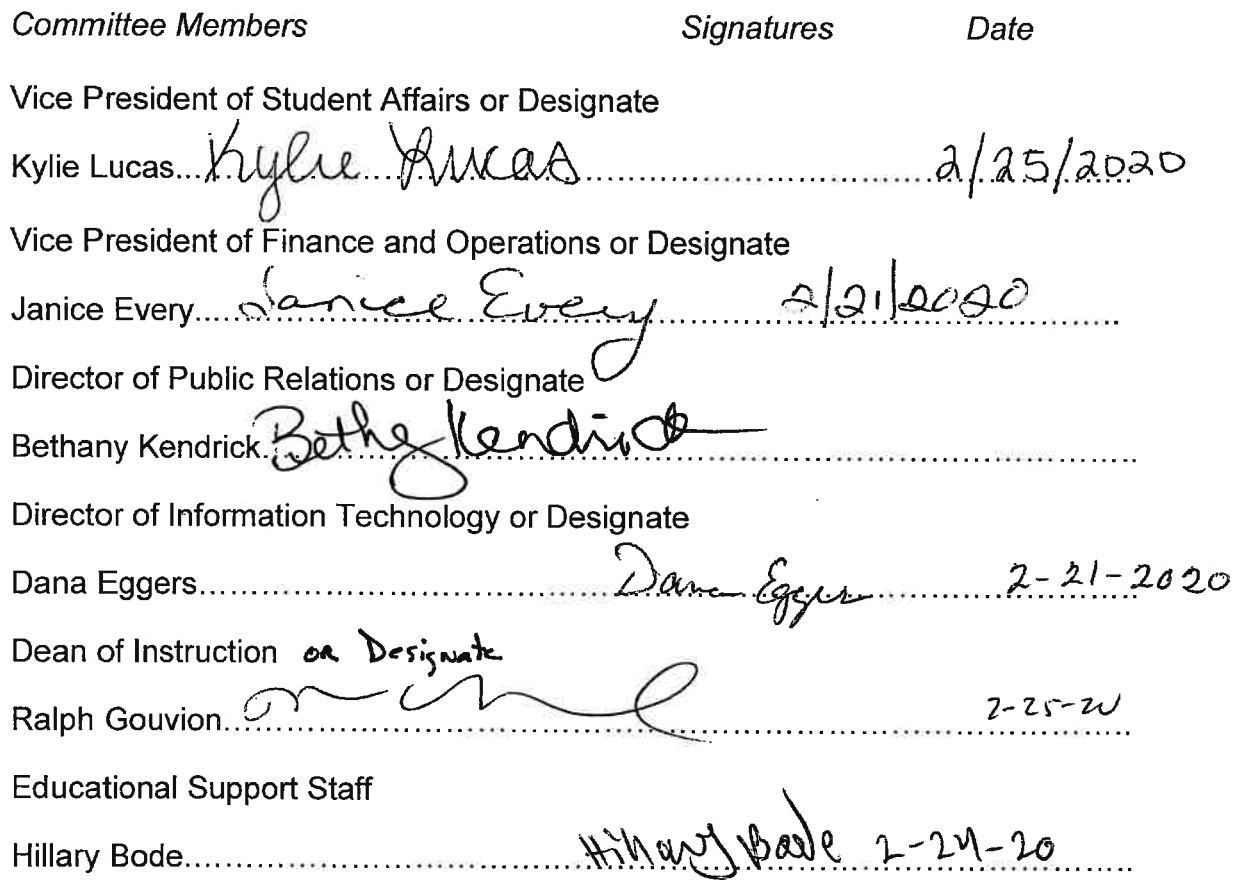 Committee Members Signatures Date
Vice President of Student Affairs or Designate
Kylie Lucas... Kylie Lucas 2/25/2020
Vice President of Finance and Operations or Designate
Janice Every.... Janice Every 2/21/2020
Director of Public Relations or Designate
Bethany Kendrick Kendrick
Director of Information Technology or Designate
Dana Eggers.... Dana Eggers 2-21-2020
Dean of Instruction or Designate
Ralph Gouvion... 2-25-20
Educational Support Staff
Hillary Bode.... Hillary Bode 2-24-20